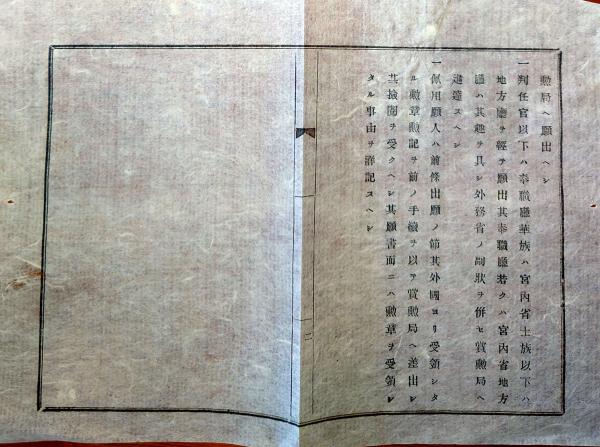 勲局ヘ願出ヘシ
一判任官以下ハ奉職廳華族ハ宮内省士族以下ハ
地方廳ヲ經テ願出其奉職廳若クハ宮内省地方
廳ハ其趣ヲ具シ外務省ノ副狀ヲ併セ賞勲局ヘ
進達スヘシ
一佩用願人ハ前條出願ノ節其外國ヨリ受領シタ
ル勲章勲記ヲ前ノ手續ヲ以テ賞勲局ヘ差出シ
其撿閲ヲ受クヘシ其願書面ニハ勲章ヲ受領シ
タル事由ヲ詳記スヘシ
二